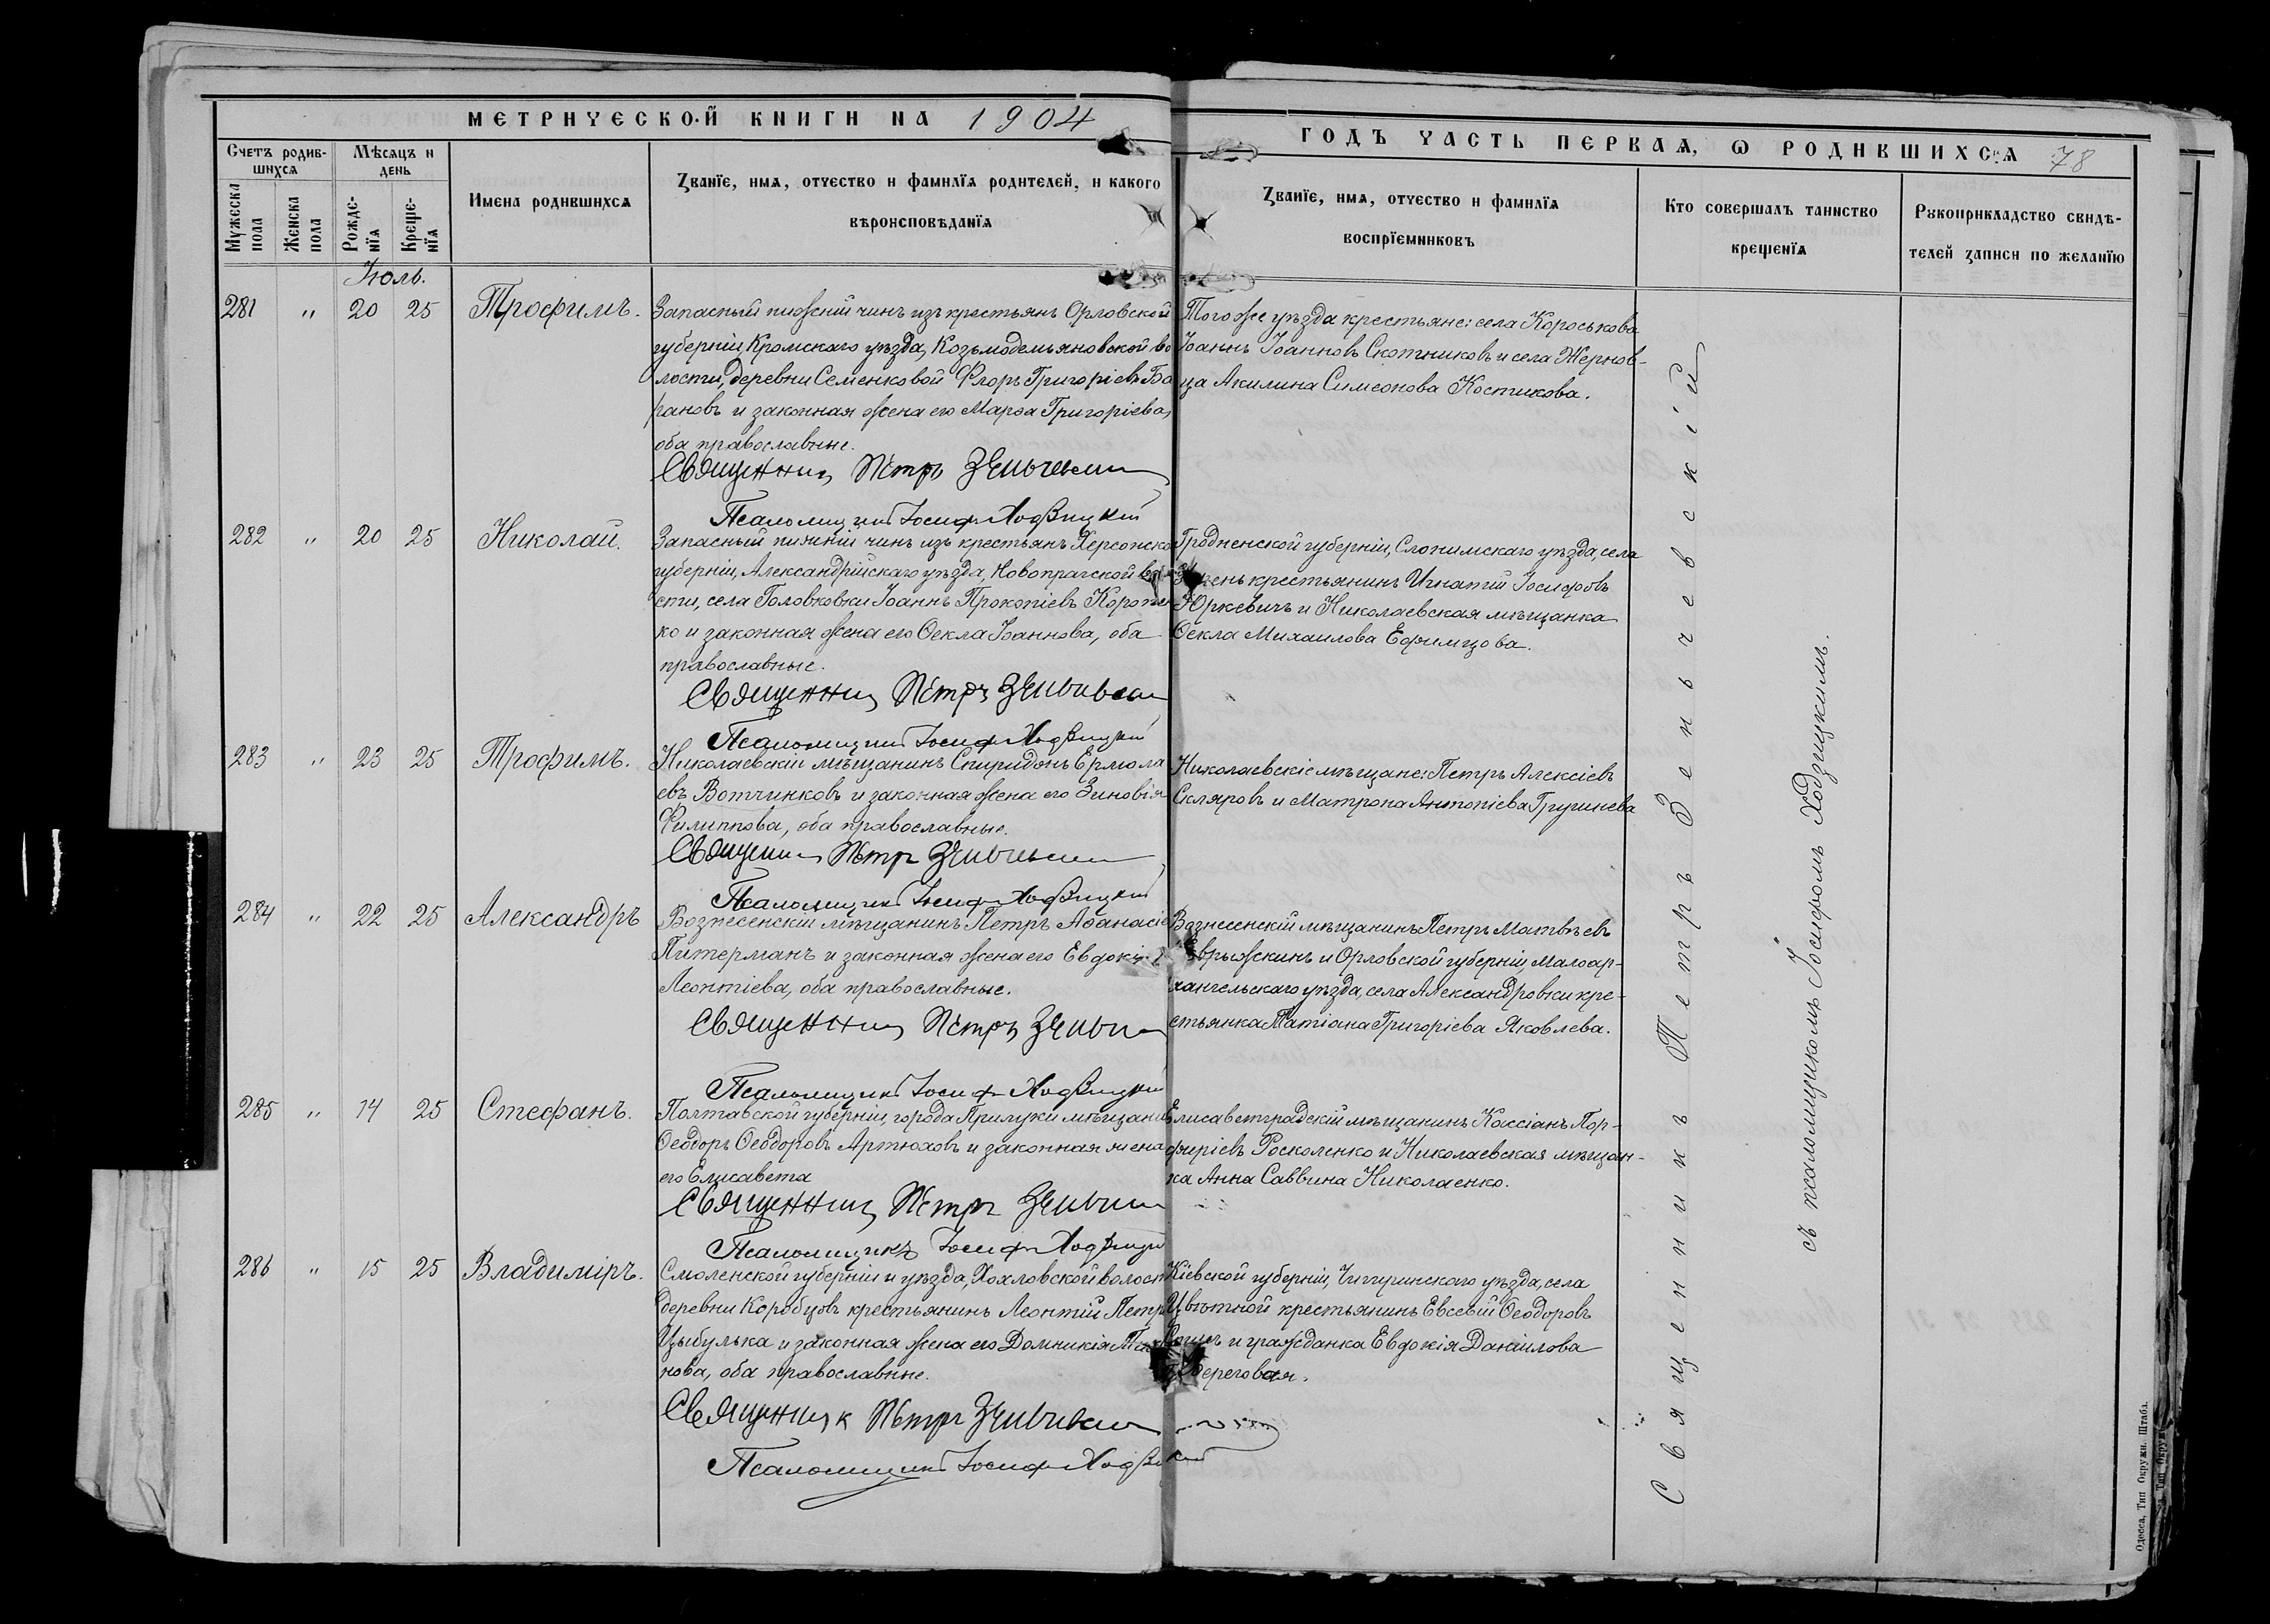 МЕТРИЧЕСКОЙ КНИГИ НА 1904
ГОДЪ ЧАСТЬ ПЕРВАЯ, Ѡ РОДИВШИХСЯ 78
Счетъ родив-
шихся
Мѣсяцъ и
день
Мужеска
пола
Женска
пола
Рожде-
нїя
Креще-
нїя
Имена родившихся
Званїе, имя, отчество и фамилїя родителей, и какого
вѣроисповѣданїя
Званїе, имя, отчество и фамилїя
воспрїемниковъ
Кто совершалъ таинство
крещенїя
Рукоприкладство свидѣ-
телей записи по желанїю
Іюль.
281 " 20 25 Трофимъ.
Запасный нижній чинъ изъ крестьянъ Орловской
губерніи, Кромскаго уѣзда, Козьмодемьяновской во
лости, деревни Семенковой Флоръ Григоріевъ Ба
рановъ и законная жена его Марѳа Григоріева,
оба православные.
Священникъ Петръ Зеньчевскій
Псаломщикъ Іосифъ Ходзицкій
Того же уѣзда крестьяне: села Короськова
Іоаннъ Іоанновъ Скотниковъ и села Жернов-
ца Акилина Симеонова Костикова.
282 " 20 25 Николай.
Запасный нижній чинъ изъ крестьянъ Херсонско
губерніи, Александрійскаго уѣзда, Новопражской
сти, села Головковки Іоаннъ Прокопіевъ
ко и законная жена его Ѳекла Іоаннова, оба
православные.
Священникъ Петръ Зеньчевскій
Псаломщикъ Іосифъ Ходзицкій
Гродненской губерніи, Слонимскаго уѣзда, села
крестьянинъ Игнатій Іосифовъ
Юркевичъ и Николаевская мѣщанка
Ѳекла Михаилова Ефимцова.
283 " 23 25 Трофимъ.
Николаевскій мѣщанинъ Спиридонъ Ермола
евъ Вотчинковъ и законная жена его Зиновія
Филиппова, оба православные.
Священникъ Петръ Зеньчевскій
Псаломщикъ Іосифъ Ходзицкій
Николаевскіе мѣщане: Петръ Алексіевъ
Скляровъ и Матрона Антоніева Грушнева
284 " 22 25 Александръ
Вознесенскій мѣщанинъ Петръ Аѳанасіе
Питерманъ и законная жена его Евдокія
Леонтіева, оба православные.
Священникъ Петръ Зеньчевскій
Псаломщикъ Іосифъ Ходзицкій
Вознесенскій мѣщанинъ Петръ Матвѣевъ
и Орловской губерніи, Малоар-
хангельскаго уѣзда, села Александровки кре-
стьянка Татіана Григоріева Яковлева.
285 " 14 25 Стефанъ.
Полтавской губерніи, города Прилуки мѣщанин
Ѳеодоръ Ѳеодоровъ Артюховъ и законная жена
его Елисавета
Священникъ Петръ Зеньчевскій
Псаломщикъ Іосифъ Ходзицкій
Елисаветградскій мѣщанинъ Кассіанъ Пор-
фиріевъ Росколенко и Николаевская мѣщан-
ка Анна Саввина Николаенко.
286 " 15 25 Владиміръ.
Смоленской губерніи и уѣзда, Хохловской волост
деревни Коробцовъ крестьянинъ Леонтій Петр
Цыбулька и законная жена его Домникія
нова, оба православные.
Священникъ Петръ Зеньчевскій
Псаломщикъ Іосифъ Ходзицкій
Кіевской губерніи, Чигиринскаго уѣзда, села
Цвѣтной крестьянинъ Евсевій Ѳеодоровъ
и гражданка Евдокія Даніилова
Священникъ Петръ Зеньчевскій
съ псаломщикомъ Іосифомъ Ходзицкимъ.
Одесса, Тип Окружн. Штаба.